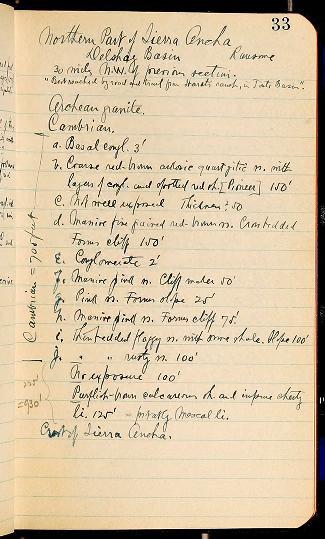 33
Northern Part of Sierra Ancha
Delshay Basin Ransome
30 miles N.W. of previous section.
"Best reached by road and trail from Ranch, in Tonto Basin".
Archean granite.
Cambrian.
a. Basal congl. 3'
b. Coarse red-brown arkosic quartzitic ss. with
layers of congl. and spotted red sh. [Pioneer] 150'
c. Not well exposed Thickness? 50
d. Massive fine grained red-brown ss. Crossbedded
Forms cliff 150'
e. Conglomerate 2'
f. Massive pink ss. Cliff maker 50'
g. Pink ss. Forms slope 25'
h. Massive pink ss. Forms cliff 75'.
i. Thin bedded flaggy ss. with some shale. Slope 100'
j. " " rusty ss. 100'
No exposure 100'
Purplish-brown calcareous sh. and impure cherty
li. 125' = probably Mescal li.
Crest of Sierra Ancha.
Cambrian = 705 feet
225'
=930'